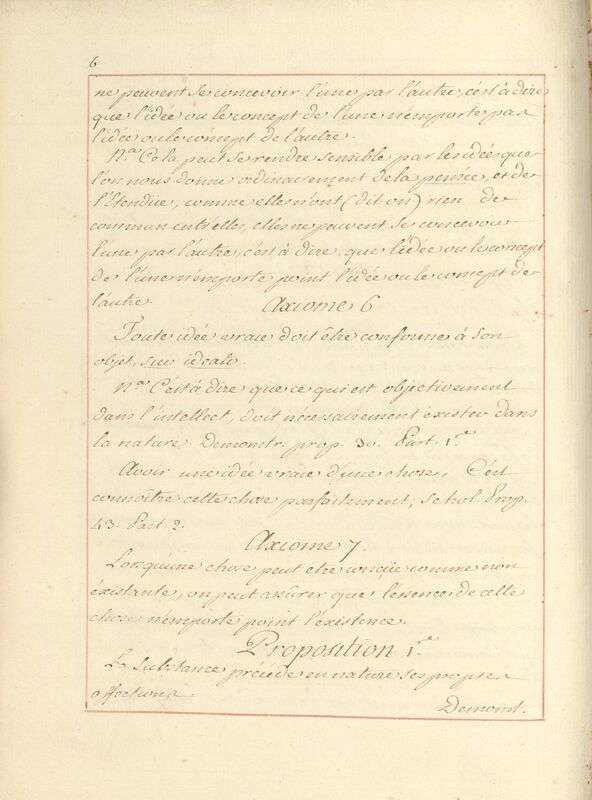 6
ne peuvent se concevoir l'une par l'autre, c'est à dire
que l'idée ou le concept de l'une n'emporte pas
l'idée ou le concept de l'autre.
N.a Cela peut se rendre sensible par les idées que
l'on nous donne ordinairement de la pensée, et de
l'Etendue; comme elles n'ont (dit on) rien de
commun entr'elles, elles ne peuvent se concevoir
l'une par l'autre, c'est à dire, que l'idée ou le concept
de l'une n'emporte point l'idée ou le concept de
l'autre.
Axiome 6
Toute idée vraie doit être conforme à son
objet, suo ideato.
N.a C'est à dire que ce qui est objectivement
dans l'intellect, doit nécessairement exister dans
la nature. Demontr. prop. 30. Part. 1.re
Avoir une idée vraie d'une chose, C'est
connoître cette chose parfaitement; schol. Prop.
43. Part. 2.
Axiome 7.
Lorsqu'une chose peut être conçüe comme non
éxistante, on peut assûrer que l'essence de cette
chose n'emporte point l'éxistence.
Proposition 1.re
La Substance précéde en nature ses propres
affections
Demonst.